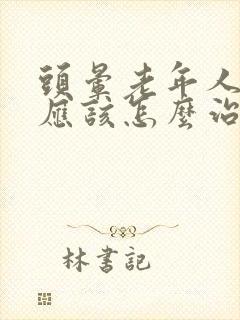 頭暈老年人
應該怎麼治
林書記